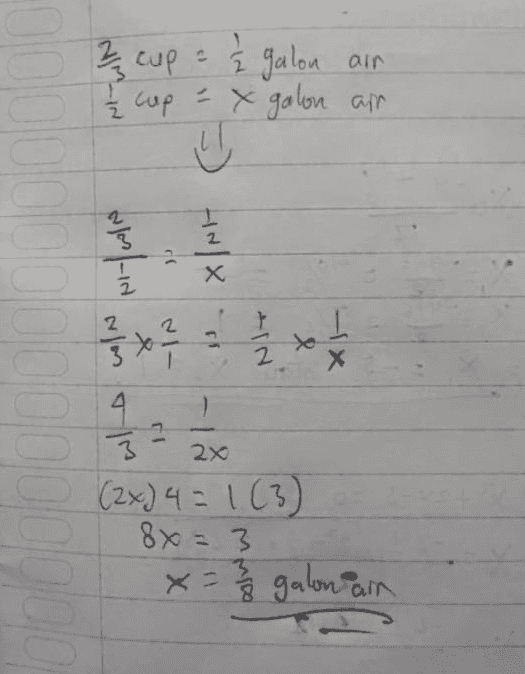 2/3 cup = 1/2 galon air
1/2 cup = x galon air
⇓
(2/3)/(1/2) = (1/2)/x
2/3 × 2/1 = 1/2 × 1/x
4/3 = 1/2x
(2x) 4 = 1 (3)
8x = 3
x = 3/8 galon air